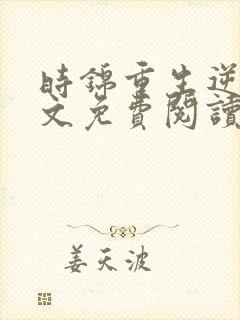 時錦重生逆
文免費閱讀
姜天波